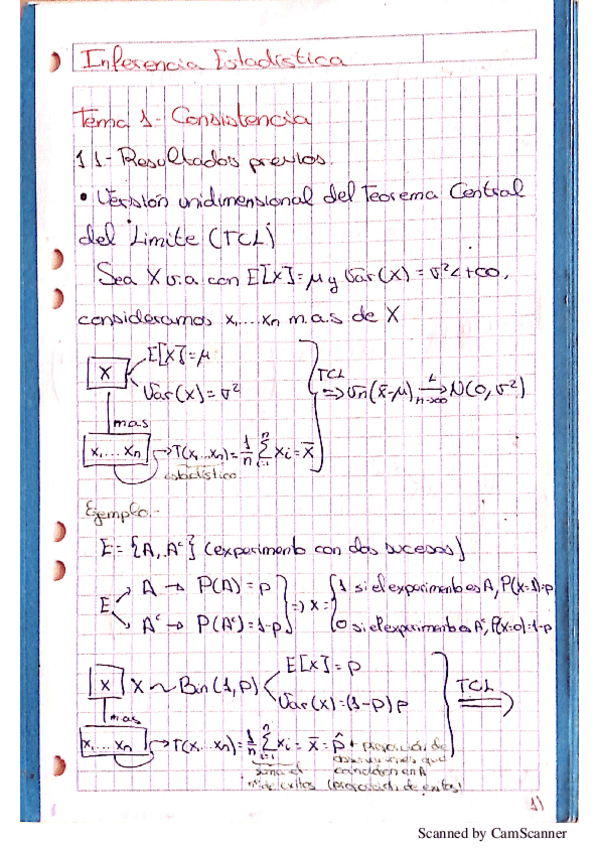 Inferencia Estadística
Tema 1.- Consistencia
1.1.- Resultados previos.
• Versión unidimensional del Teorema Central
del Límite (TCL)
Sea X v.a con E[X]=μ y Var(X)=σ²<+∞,
consideramos x₁...xₙ m.a.s de X
E[X]=μ
X
Var(X)=σ²
TCL
⇒ √n(x̄-μ) L→ n→∞ N(0,σ²)
mas
x₁...xₙ → T(x₁...xₙ)= 1/n Σⁿᵢ₌₁ xᵢ = x̄
estadístico
Ejemplo.-
E={A, Aᶜ} (experimento con dos sucesos)
E
A → P(A)=p
Aᶜ → P(Aᶜ)=1-p
⇒ X =
1 si el experimento es A, P(X=1)=p
0 si el experimento es Aᶜ, P(X=0)=1-p
X X ~ Bin(1,p)
E[X]=p
Var(X)=(1-p)p
TCL
⟹
mas
x₁...xₙ → T(x₁...xₙ)= 1/n Σⁿᵢ₌₁ xᵢ = x̄ = p̂ → proporción de
que
suma el coinciden en A
nº de éxitos (proporción de éxitos)
1)
Scanned by CamScanner